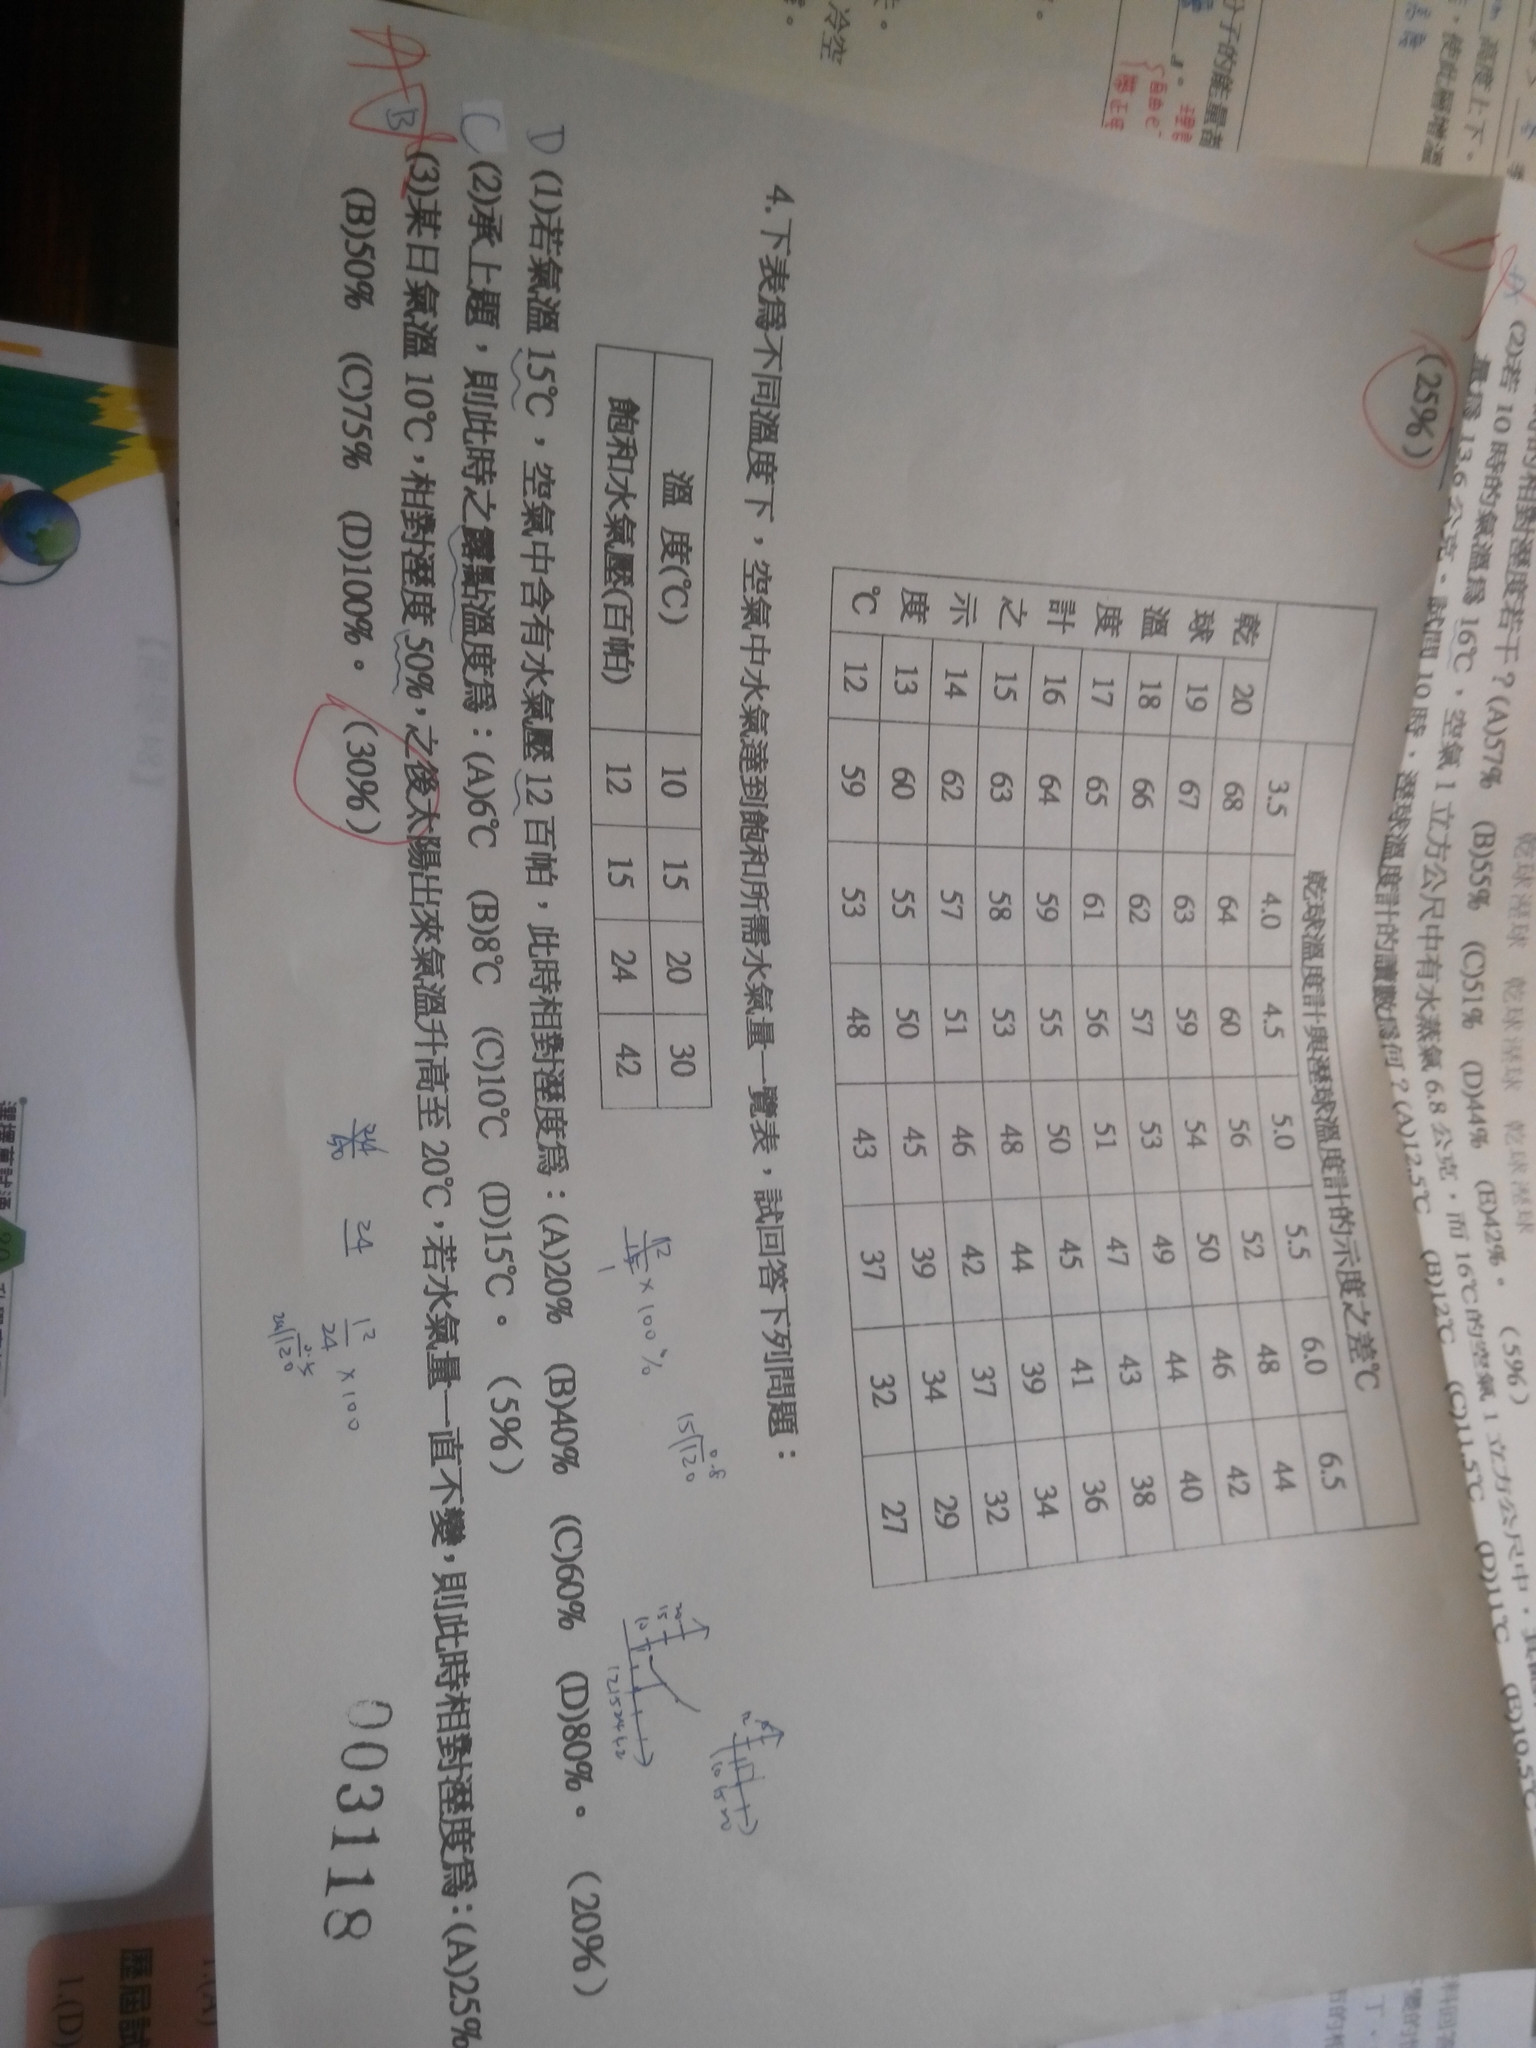 分子的能量皆
高度上下。
，使此層增溫
冷空
的相對溼度若干？(A)57% (B)55% (C)51% (D)44% (E)42%。（5%）
(2)若 10 時的氣溫為 16℃，空氣 1 立方公尺中有水蒸氣 6.8 公克，而 16℃的空氣 1 立方公尺中，
量為 13.6 公克。試問 10 時，溼球溫度計的讀數為何？(A)12.5℃ (B)12℃ (C)11.5℃ (D)11℃ (E)10.5℃
（25%）
乾球溫度計與溼球溫度計的示度之差℃
3.5 4.0 4.5 5.0 5.5 6.0 6.5
乾球溫度計之示度℃
20 68 64 60 56 52 48 44
19 67 63 59 54 50 46 42
18 66 62 57 53 49 44 40
17 65 61 56 51 47 43 38
16 64 59 55 50 45 41 36
15 63 58 53 48 44 39 34
14 62 57 51 46 42 37 32
13 60 55 50 45 39 34 29
12 59 53 48 43 37 32 27
4.下表為不同溫度下，空氣中水氣達到飽和所需水氣量一覽表，試回答下列問題：
溫 度(℃) 10 15 20 30
飽和水氣壓(百帕) 12 15 24 42
12/15 × 100%
0.8
15 120
D (1)若氣溫 15℃，空氣中含有水氣壓 12 百帕，此時相對溼度為：(A)20% (B)40% (C)60% (D)80%。（20%）
C (2)承上題，則此時之露點溫度為：(A)6℃ (B)8℃ (C)10℃ (D)15℃。（5%）
A B (3)某日氣溫 10℃，相對溼度 50%，之後太陽出來氣溫升高至 20℃，若水氣量一直不變，則此時相對溼度為：(A)25%
(B)50% (C)75% (D)100%。（30%）
24
12/24 × 100
0.5
24 120
003118
歷屆試
1.(D)